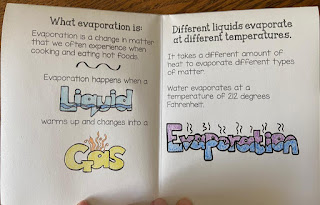 What evaporation is:
Evaporation is a change in matter
that we often experience when
cooking and eating hot foods.
Evaporation happens when a
Liquid
warms up and changes into a
Gas
Different liquids evaporate
at different temperatures.
It takes a different amount of
heat to evaporate different types
of matter.
Water evaporates at a
temperature of 212 degrees
Fahrenheit.
Evaporation